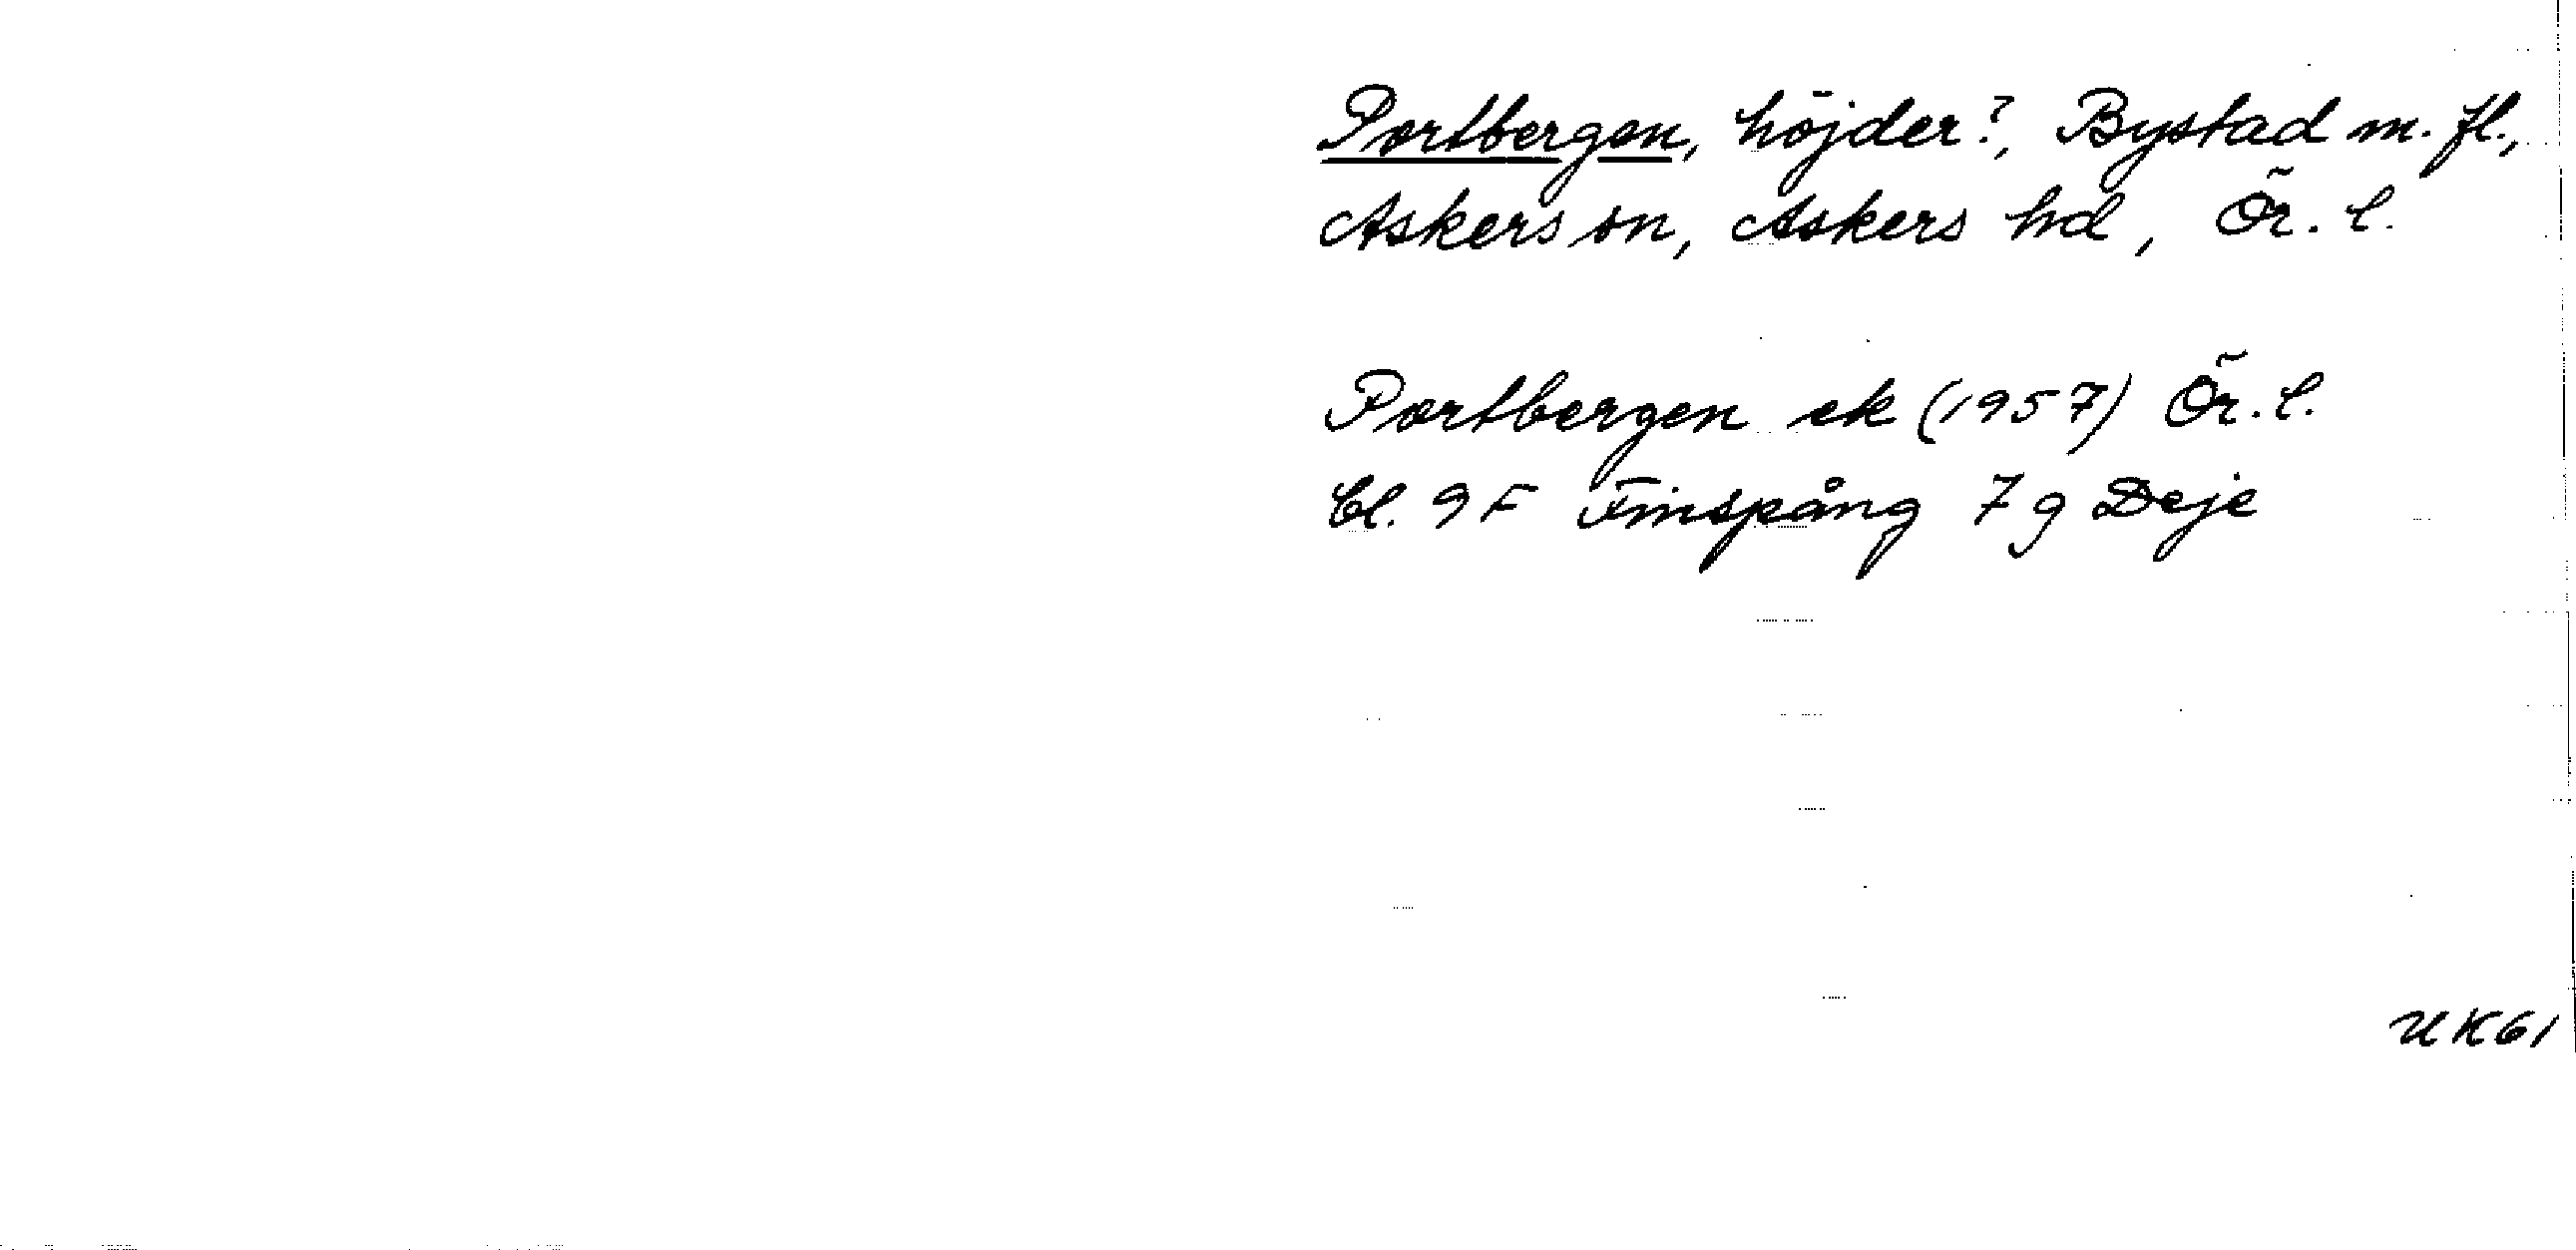 Portbergen, höjder?, Bystad m. fl.,
Askers sn, Askers hd, Ör. l.
Portbergen ek (1957) Ör. l.
bl. 9 F Finspång 7 g Deje
UK61